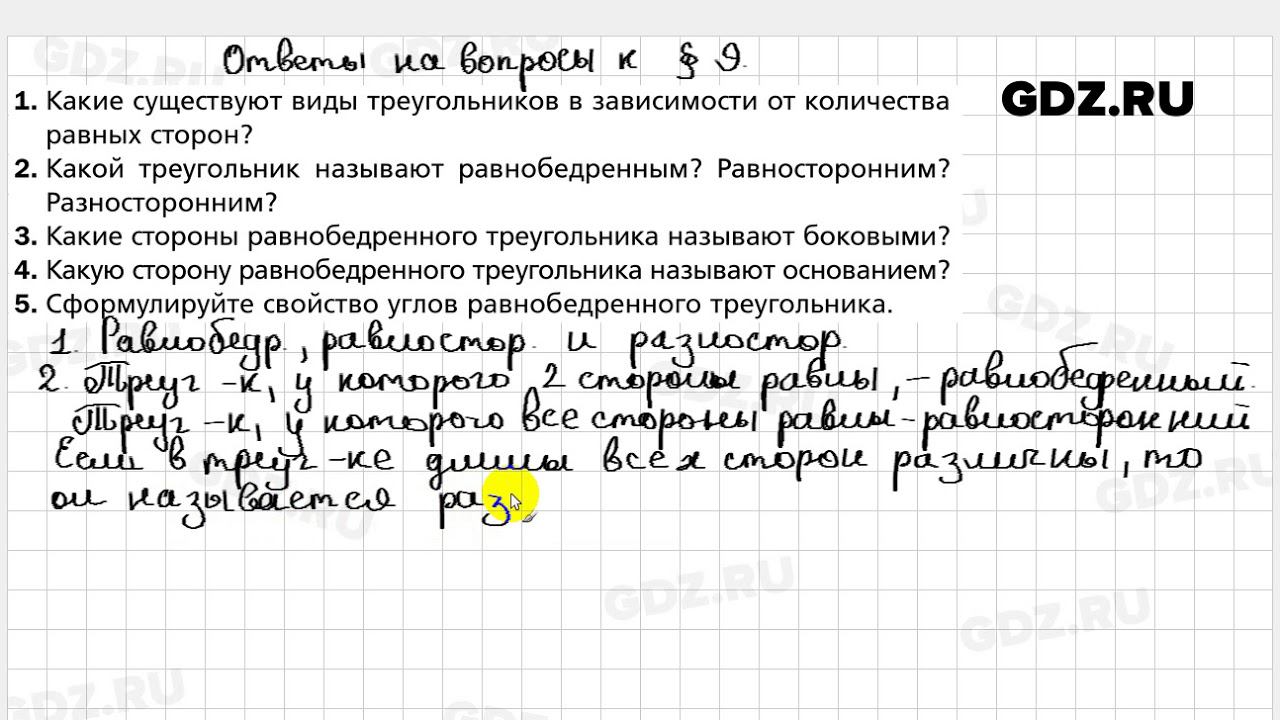 Ответы на вопросы к § 9.
GDZ.RU
1. Какие существуют виды треугольников в зависимости от количества
равных сторон?
2. Какой треугольник называют равнобедренным? Равносторонним?
Разносторонним?
3. Какие стороны равнобедренного треугольника называют боковыми?
4. Какую сторону равнобедренного треугольника называют основанием?
5. Сформулируйте свойство углов равнобедренного треугольника.
1. Равнобедр., равностор. и разностор.
2. Треуг-к, у которого 2 стороны равны, – равнобедренный.
Треуг-к, у которого все стороны равны – равносторонний
Если в треуг-ке длины всех сторон различны, то
он называется раз
GDZ.RU
GDZ.RU
GDZ.RU
GDZ.RU
GDZ.RU
GDZ.RU
GDZ.RU